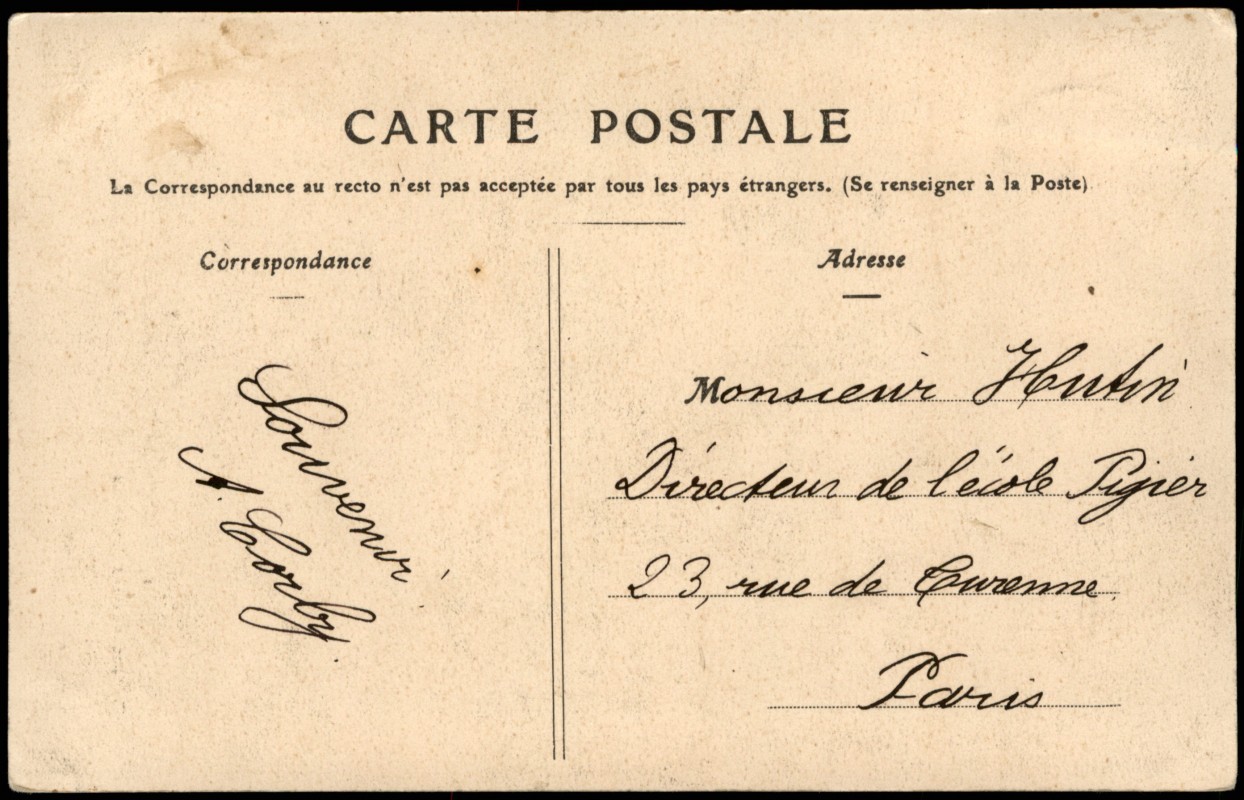 CARTE POSTALE
La Correspondance au recto n'est pas acceptée par tous les pays étrangers. (Se renseigner à la Poste)
Correspondance
Souvenir
A. Corby
Adresse
Monsieur Hutin
Directeur de l'école Pigier
23, rue de Turenne
Paris